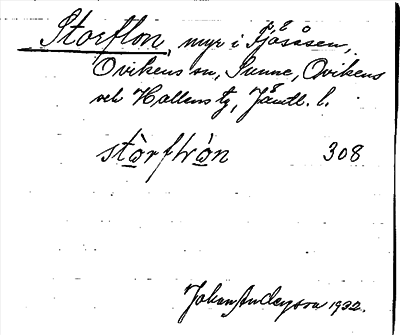 Storflon, myr i Fjösåsen,
Ovikens sn, Sunne, Ovikens
och Hallens tg, Jämtl. l.
stòrflròn 308
Johan Anderson 1932.